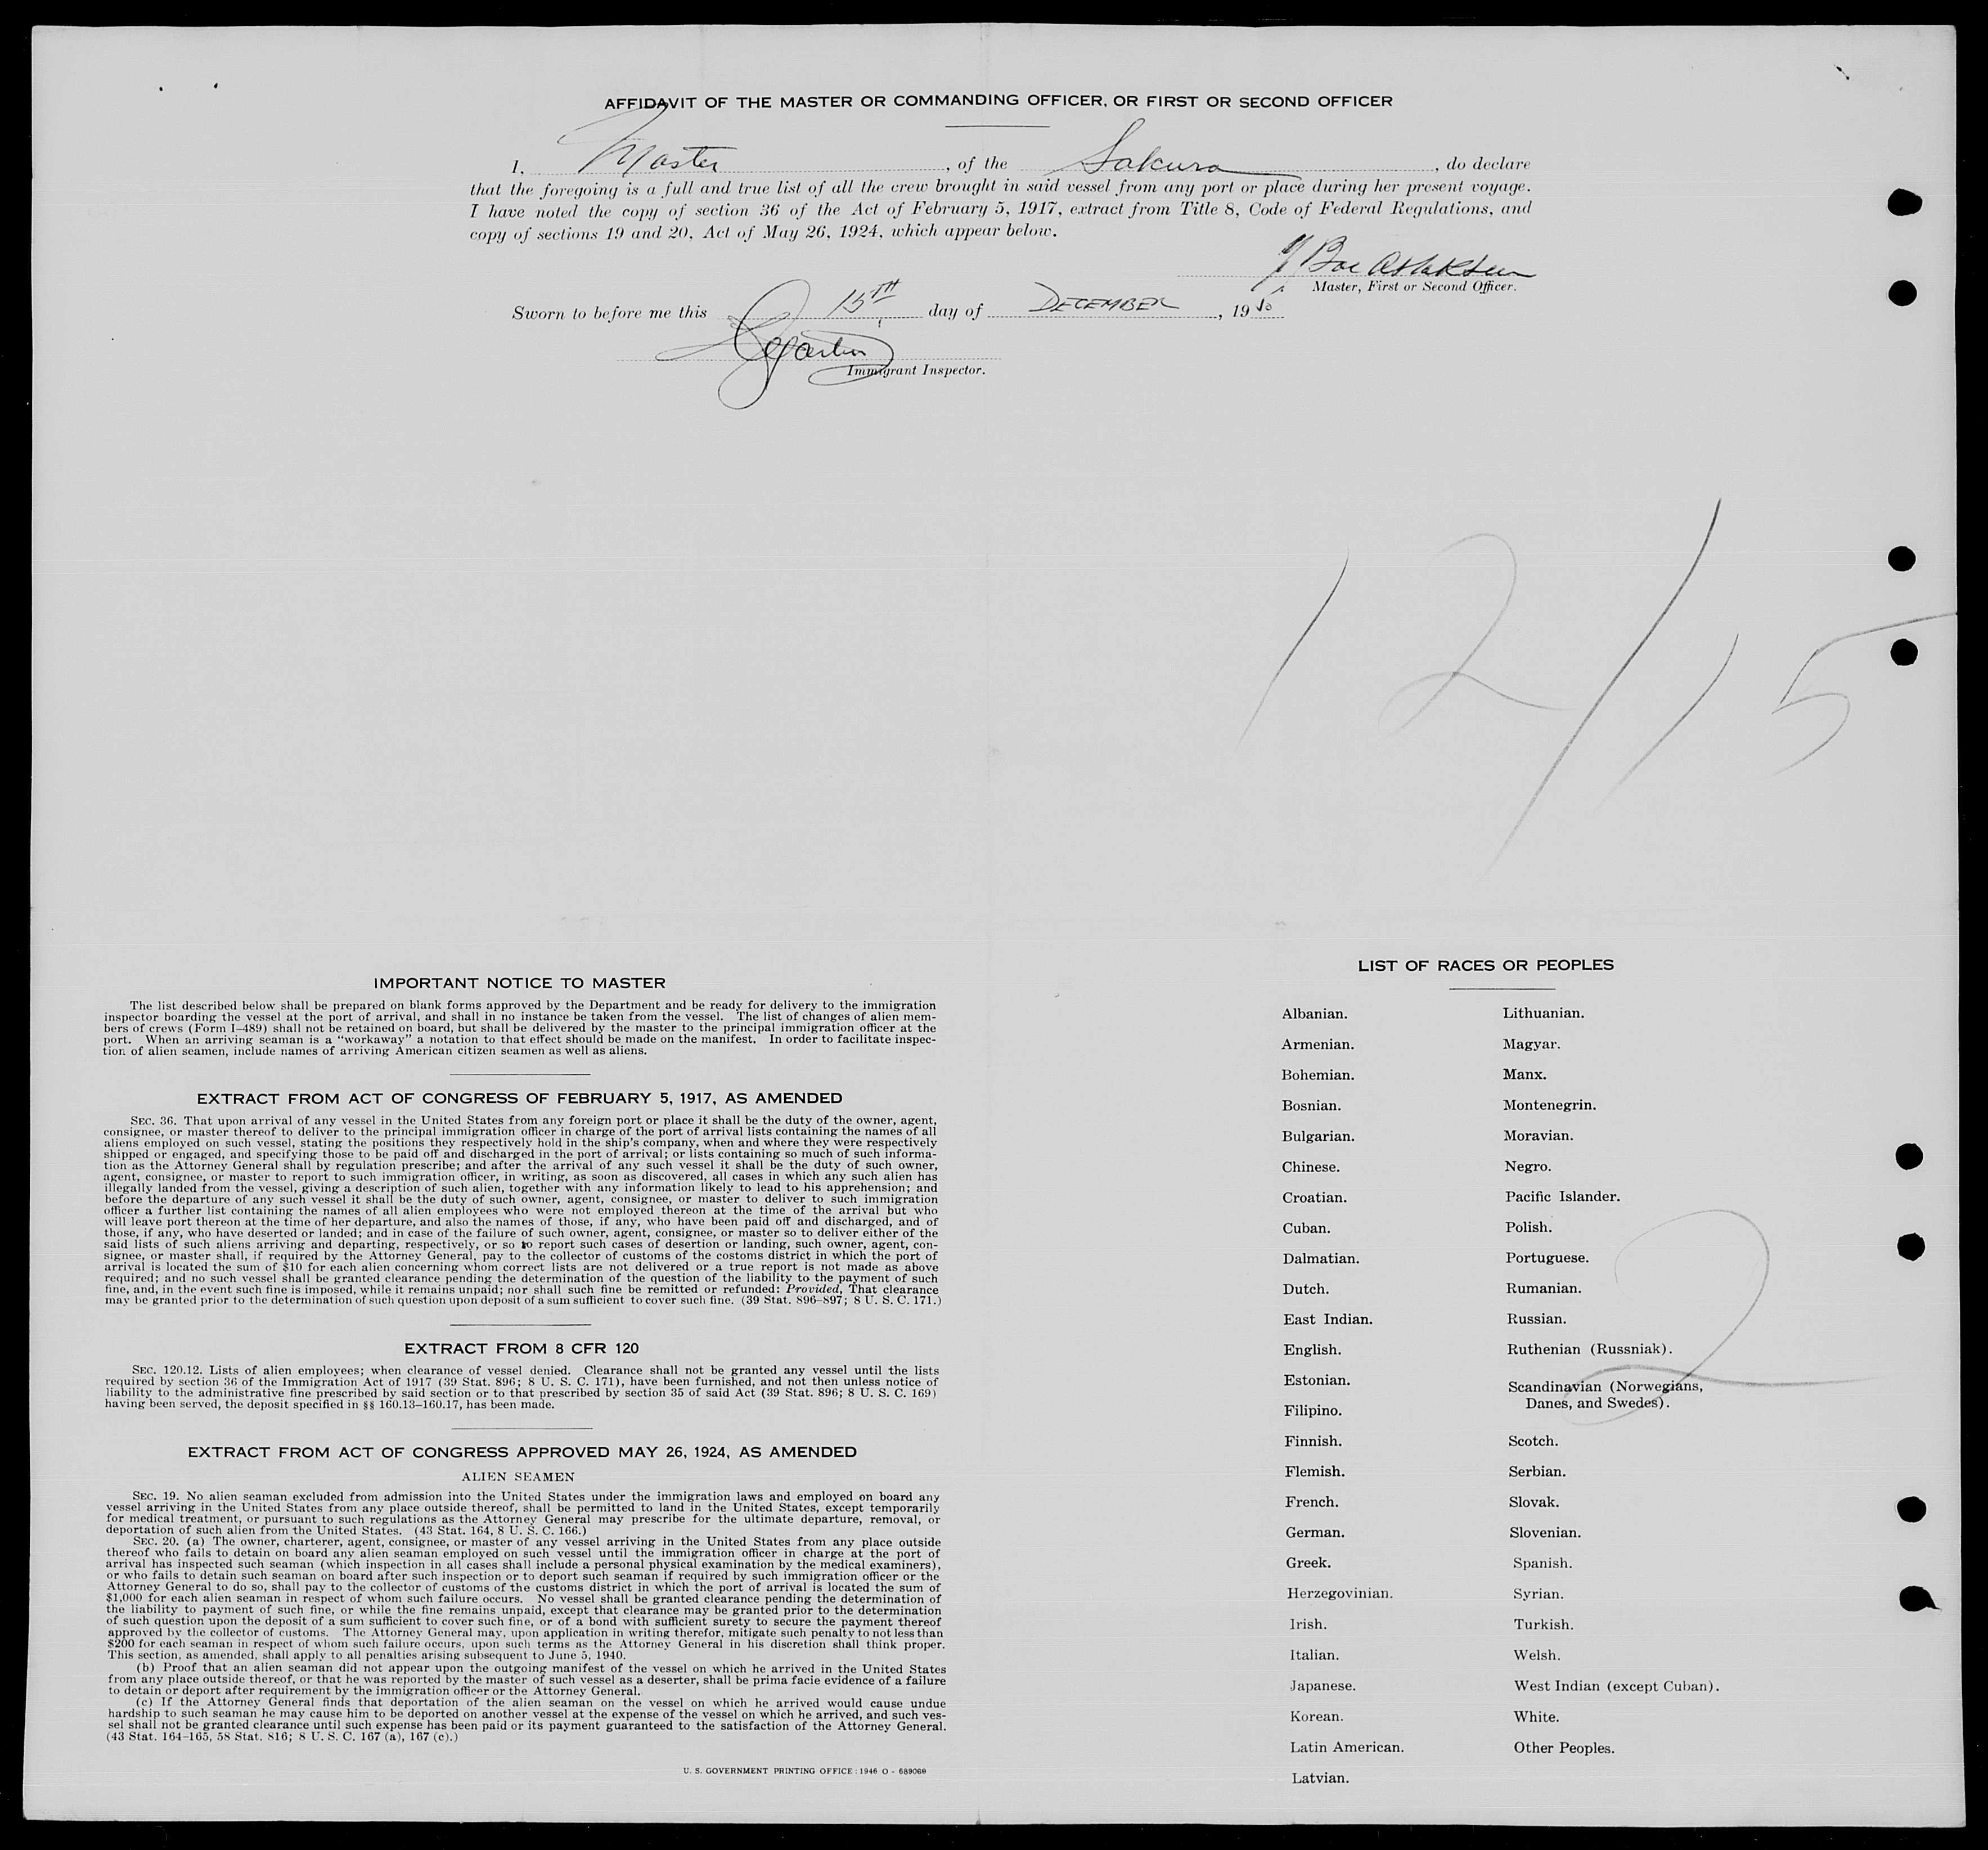 AFFIDAVIT OF THE MASTER OR COMMANDING OFFICER, OR FIRST OR SECOND OFFICER
I, Master, of the Sakura, do declare
that the foregoing is a full and true list of all the crew brought in said vessel from any port or place during her present voyage.
I have noted the copy of section 36 of the Act of February 5, 1917, extract from Title 8, Code of Federal Regulations, and
copy of sections 19 and 20, Act of May 26, 1924, which appear below.
Master, First or Second Officer.
Sworn to before me this 15TH day of DECEMBER, 19
Immigrant Inspector.
12/15
IMPORTANT NOTICE TO MASTER
The list described below shall be prepared on blank forms approved by the Department and be ready for delivery to the immigration
inspector boarding the vessel at the port of arrival, and shall in no instance be taken from the vessel. The list of changes of alien mem-
bers of crews (Form I-489) shall not be retained on board, but shall be delivered by the master to the principal immigration officer at the
port. When an arriving seaman is a "workaway" a notation to that effect should be made on the manifest. In order to facilitate inspec-
tion of alien seamen, include names of arriving American citizen seamen as well as aliens.
EXTRACT FROM ACT OF CONGRESS OF FEBRUARY 5, 1917, AS AMENDED
SEC. 36. That upon arrival of any vessel in the United States from any foreign port or place it shall be the duty of the owner, agent,
consignee, or master thereof to deliver to the principal immigration officer in charge of the port of arrival lists containing the names of all
aliens employed on such vessel, stating the positions they respectively hold in the ship's company, when and where they were respectively
shipped or engaged, and specifying those to be paid off and discharged in the port of arrival; or lists containing so much of such informa-
tion as the Attorney General shall by regulation prescribe; and after the arrival of any such vessel it shall be the duty of such owner,
agent, consignee, or master to report to such immigration officer, in writing, as soon as discovered, all cases in which any such alien has
illegally landed from the vessel, giving a description of such alien, together with any information likely to lead to his apprehension; and
before the departure of any such vessel it shall be the duty of such owner, agent, consignee, or master to deliver to such immigration
officer a further list containing the names of all alien employees who were not employed thereon at the time of the arrival but who
will leave port thereon at the time of her departure, and also the names of those, if any, who have been paid off and discharged, and of
those, if any, who have deserted or landed; and in case of the failure of such owner, agent, consignee, or master so to deliver either of the
said lists of such aliens arriving and departing, respectively, or so to report such cases of desertion or landing, such owner, agent, con-
signee, or master shall, if required by the Attorney General, pay to the collector of customs of the costoms district in which the port of
arrival is located the sum of $10 for each alien concerning whom correct lists are not delivered or a true report is not made as above
required; and no such vessel shall be granted clearance pending the determination of the question of the liability to the payment of such
fine, and, in the event such fine is imposed, while it remains unpaid; nor shall such fine be remitted or refunded: Provided, That clearance
may be granted prior to the determination of such question upon deposit of a sum sufficient to cover such fine. (39 Stat. 896-897; 8 U. S. C. 171.)
EXTRACT FROM 8 CFR 120
SEC. 120.12. Lists of alien employees; when clearance of vessel denied. Clearance shall not be granted any vessel until the lists
required by section 36 of the Immigration Act of 1917 (39 Stat. 896; 8 U. S. C. 171), have been furnished, and not then unless notice of
liability to the administrative fine prescribed by said section or to that prescribed by section 35 of said Act (39 Stat. 896; 8 U. S. C. 169)
having been served, the deposit specified in §§ 160.13-160.17, has been made.
EXTRACT FROM ACT OF CONGRESS APPROVED MAY 26, 1924, AS AMENDED
ALIEN SEAMEN
SEC. 19. No alien seaman excluded from admission into the United States under the immigration laws and employed on board any
vessel arriving in the United States from any place outside thereof, shall be permitted to land in the United States, except temporarily
for medical treatment, or pursuant to such regulations as the Attorney General may prescribe for the ultimate departure, removal, or
deportation of such alien from the United States. (43 Stat. 164, 8 U. S. C. 166.)
SEC. 20. (a) The owner, charterer, agent, consignee, or master of any vessel arriving in the United States from any place outside
thereof who fails to detain on board any alien seaman employed on such vessel until the immigration officer in charge at the port of
arrival has inspected such seaman (which inspection in all cases shall include a personal physical examination by the medical examiners),
or who fails to detain such seaman on board after such inspection or to deport such seaman if required by such immigration officer or the
Attorney General to do so, shall pay to the collector of customs of the customs district in which the port of arrival is located the sum of
$1,000 for each alien seaman in respect of whom such failure occurs. No vessel shall be granted clearance pending the determination of
the liability to payment of such fine, or while the fine remains unpaid, except that clearance may be granted prior to the determination
of such question upon the deposit of a sum sufficient to cover such fine, or of a bond with sufficient surety to secure the payment thereof
approved by the collector of customs. The Attorney General may, upon application in writing therefor, mitigate such penalty to not less than
$200 for each seaman in respect of whom such failure occurs, upon such terms as the Attorney General in his discretion shall think proper.
This section, as amended, shall apply to all penalties arising subsequent to June 5, 1940.
(b) Proof that an alien seaman did not appear upon the outgoing manifest of the vessel on which he arrived in the United States
from any place outside thereof, or that he was reported by the master of such vessel as a deserter, shall be prima facie evidence of a failure
to detain or deport after requirement by the immigration officer or the Attorney General.
(c) If the Attorney General finds that deportation of the alien seaman on the vessel on which he arrived would cause undue
hardship to such seaman he may cause him to be deported on another vessel at the expense of the vessel on which he arrived, and such ves-
sel shall not be granted clearance until such expense has been paid or its payment guaranteed to the satisfaction of the Attorney General.
(43 Stat. 164-165, 58 Stat. 816; 8 U. S. C. 167 (a), 167 (c).)
U. S. GOVERNMENT PRINTING OFFICE : 1946 O - 689060
LIST OF RACES OR PEOPLES
Albanian.
Armenian.
Bohemian.
Bosnian.
Bulgarian.
Chinese.
Croatian.
Cuban.
Dalmatian.
Dutch.
East Indian.
English.
Estonian.
Filipino.
Finnish.
Flemish.
French.
German.
Greek.
Herzegovinian.
Irish.
Italian.
Japanese.
Korean.
Latin American.
Latvian.
Lithuanian.
Magyar.
Manx.
Montenegrin.
Moravian.
Negro.
Pacific Islander.
Polish.
Portuguese.
Rumanian.
Russian.
Ruthenian (Russniak).
Scandinavian (Norwegians,
Danes, and Swedes).
Scotch.
Serbian.
Slovak.
Slovenian.
Spanish.
Syrian.
Turkish.
Welsh.
West Indian (except Cuban).
White.
Other Peoples.
2